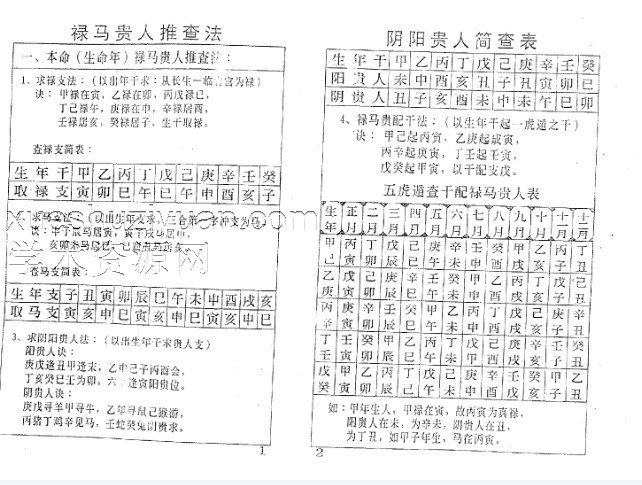 禄马贵人推查法
一、本命（生命年）禄马贵人推查法：
1、求禄支法：（以出年干求：从长生一临官宫为禄）
诀：甲禄在寅，乙禄在卯，丙戊禄巳，
丁己禄午，庚禄在申，辛禄居酉，
壬禄居亥，癸禄居子，生干取禄。
查禄支简表：
生年干甲乙丙丁戊己庚辛壬癸
取禄支寅卯巳午巳午申酉亥子
2、求马支法：（以出生年支求，三合第一字冲支为马）
诀：申子辰马居寅，寅午戌马居申，
查马支简表：
生年支子丑寅卯辰巳午未申酉戌亥
取马支寅亥申巳寅亥申巳寅亥申巳
3、求阴阳贵人法：（以出生年干求贵人支）
阳贵人诀：
庚戊逢丑甲逢未，乙申己子丙酉会，
丁亥癸巳壬为卯，六辛逢寅阳贵位。
阴贵人诀：
庚戊寻羊甲寻牛，乙年寻鼠己猴游，
丙猪丁鸡辛见马，壬蛇癸兔阴贵求。
1
阴阳贵人简查表
生年干甲乙丙丁戊己庚辛壬癸
阳贵人未申酉亥丑子丑寅卯巳
阴贵人丑子亥酉未申未午巳卯
4、禄马贵配干法：（以生年干起一虎遁之干）
诀：甲己起丙寅，乙庚起戊寅，
丙辛起庚寅，丁壬起壬寅，
戊癸起甲寅，以干配支戊。
五虎遁查干配禄马贵人表
生年 正月 二月 三月 四月 五月 六月 七月 八月 九月 十月 十一月 十二月
甲己 丙寅 丁卯 戊辰 己巳 庚午 辛未 壬申 癸酉 甲戌 乙亥 丙子 丁丑
乙庚 戊寅 己卯 庚辰 辛巳 壬午 癸未 甲申 乙酉 丙戌 丁亥 戊子 己丑
丙辛 庚寅 辛卯 壬辰 癸巳 甲午 乙未 丙申 丁酉 戊戌 己亥 庚子 辛丑
丁壬 壬寅 癸卯 甲辰 乙巳 丙午 丁未 戊申 己酉 庚戌 辛亥 壬子 癸丑
戊癸 甲寅 乙卯 丙辰 丁巳 戊午 己未 庚申 辛酉 壬戌 癸亥 甲子 乙丑
如：甲年生人，甲禄在寅，故丙寅为真禄，
阳贵人在未，为辛未，阴贵人在丑，
为丁丑，如甲子年生，马在丙寅。
2
学术资源网